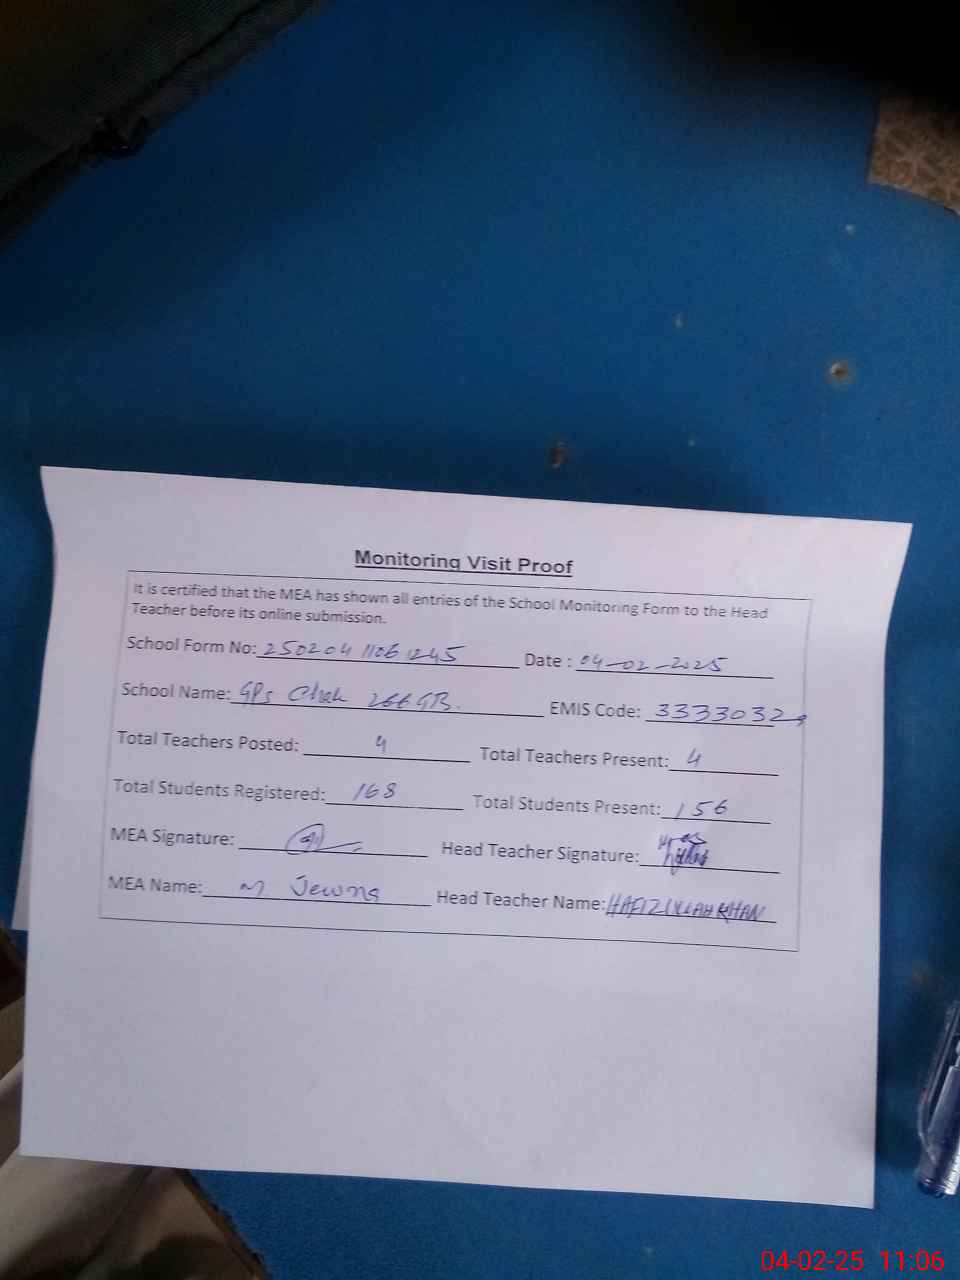 Monitoring Visit Proof
It is certified that the MEA has shown all entries of the School Monitoring Form to the Head
Teacher before its online submission.
School Form No: 250204 1106 1245 Date : 04-02-2025
School Name: GPS Chak 266 GB. EMIS Code: 3333032
Total Teachers Posted: 4 Total Teachers Present: 4
Total Students Registered: 168 Total Students Present: 156
MEA Signature: Head Teacher Signature:
MEA Name: M. Head Teacher Name: HAFIZ ULLAH KHAN
04-02-25 11:06